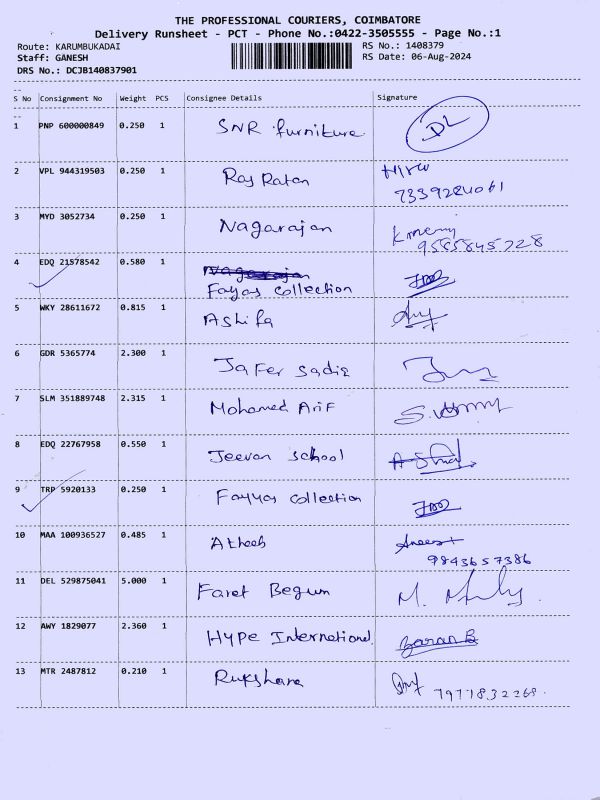 THE PROFESSIONAL COURIERS, COIMBATORE
Delivery Runsheet - PCT - Phone No.:0422-3505555 - Page No.:1
Route: KARUMBUKADAI RS No.: 1408379
Staff: GANESH RS Date: 06-Aug-2024
DRS No.: DCJB140837901
S No Consignment No Weight PCS Consignee Details Signature
1 PNP 600000849 0.250 1 SNR furniture DL
2 VPL 944319503 0.250 1 Raj Ratan
7339224061
3 MYD 3052734 0.250 1 Nagarajan
9585845728
4 EDQ 21578542 0.580 1 Nagarajan
Fayas collection
5 WKY 28611672 0.815 1 Ashifa
6 GDR 5365774 2.300 1 Jafer Sadiq
7 SLM 351889748 2.315 1 Mohamed Arif
8 EDQ 22767958 0.550 1 Jeevan School
9 TRP 5920133 0.250 1 Fayyas collection
10 MAA 100936527 0.485 1 Atheeb
9843657386
11 DEL 529875041 5.000 1 Faret Begum
12 AWY 1829077 2.360 1 Hype International
13 MTR 2487812 0.210 1 Rukshana
7977832268